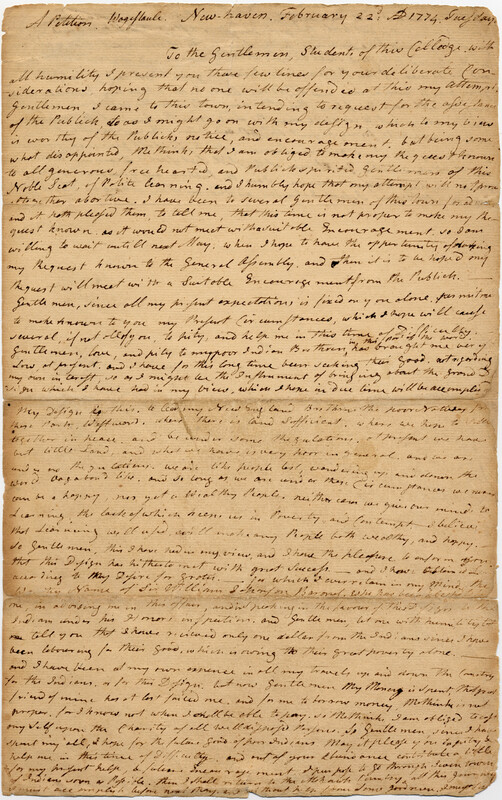 A Petition. New-haven. February 22d AD 1774, Tuesday
To the Gentlemen, Students of this Colledge, with
all humility I present you these few lines for your deliberate Con
siderations hoping that no one will be offended at this my attempt
Gentlemen I came to this town, intending to request for the assistance
of the Publick, so as I might go on with my design, which to my view
is worthy of the Publicks notice, and encouragement, but being some
what disappointed, Methinks that I am obliged to make my request known
to all generous, free hearted, and Publick spirited Gentlemen of this
Noble Seat, of Polite learning. and I humbly hope that my attempt will not prove
altogether abortive. I have been to several Gentlemen of this town for advice
and it hath pleased them to tell me, that this time is not proper to make my Re
quest known, as it would not meet with suitable Encouragement. so I am
willing to wait until next May, when I hope to have the opportunity of making
my Request known to the General Assembly, and then it is to be hop'd my
Request will meet with a Suitable Encouragement from the Publick.
Gentlemen, since all my present expectations is fixed on you alone, permit me
to make known to you my Present Circumstances, which I hope will cause
several, if not all of you, to pity, and help me in this time of Difficulty
Gentlemen, love, and pity to my poor Indian Brethren, has brought me very
low in the things of this world
at present, and I have for this long time been seeking their Good. not regarding
my own interest, so as I might be the Instrument of bringing about the Grand
Design which I have had in my view, which I hope in due time will be accomplish'd
My Design is this, to lead my New England Brethren the poor Natives of
these Parts, Westward. where there is land sufficient, where we hope to settle
together in peace, and be under some Regulations. at Present we have
but little Land, and what we have is very poor in general. and we are
under no Regulations. we are like people lost, wandering up, and down the
world. Vagabond like, and so long as we are under these Circumstances we
can be a happy, nor yet a Wealthy People. neither can we give our minds to
Learning, the lack of which keeps us in Poverty, and Contempt. I believe
that Learning well used, will make any People both wealthy, and happy.
So Gentlemen, this I have had in my view, and I have the pleasure, to inform you
that this Design has hitherto met with great Success — and I have Obtained
according to My Desire for Grates. — for which I ever retain in my Mind, the
Name of Sir William Johnson Baronet, who has been
me, in advising me in this affair, and in speaking in the favour of this Design to the
Indians under his Honors inspection, and Gentlemen, let me with humility
me tell you that I have received only one dollar from the Indians since I have
been labouring for their Good, which is owing to their great poverty alone. —
and I have been at my own expence in all my travels up and down the Country
for the Indians, or for this Design, but now Gentlemen My Money is spent, that great
friend of mine has at last failed me, and for me to borrow money Methinks is not
proper, for I know not when I shall be able to pay, so Methinks, I am obliged to cast
my Self upon the Charity of all well disposed Persons. So Gentlemen, since I have
spent my all, I hope for the future Good of poor Indians May it please you to
help me in this time of Difficulty — and out of your abundance contribute a little
for my present help, & future Encouragement. I purpose to go through Even town
of Indians soon as Possible, then I shall